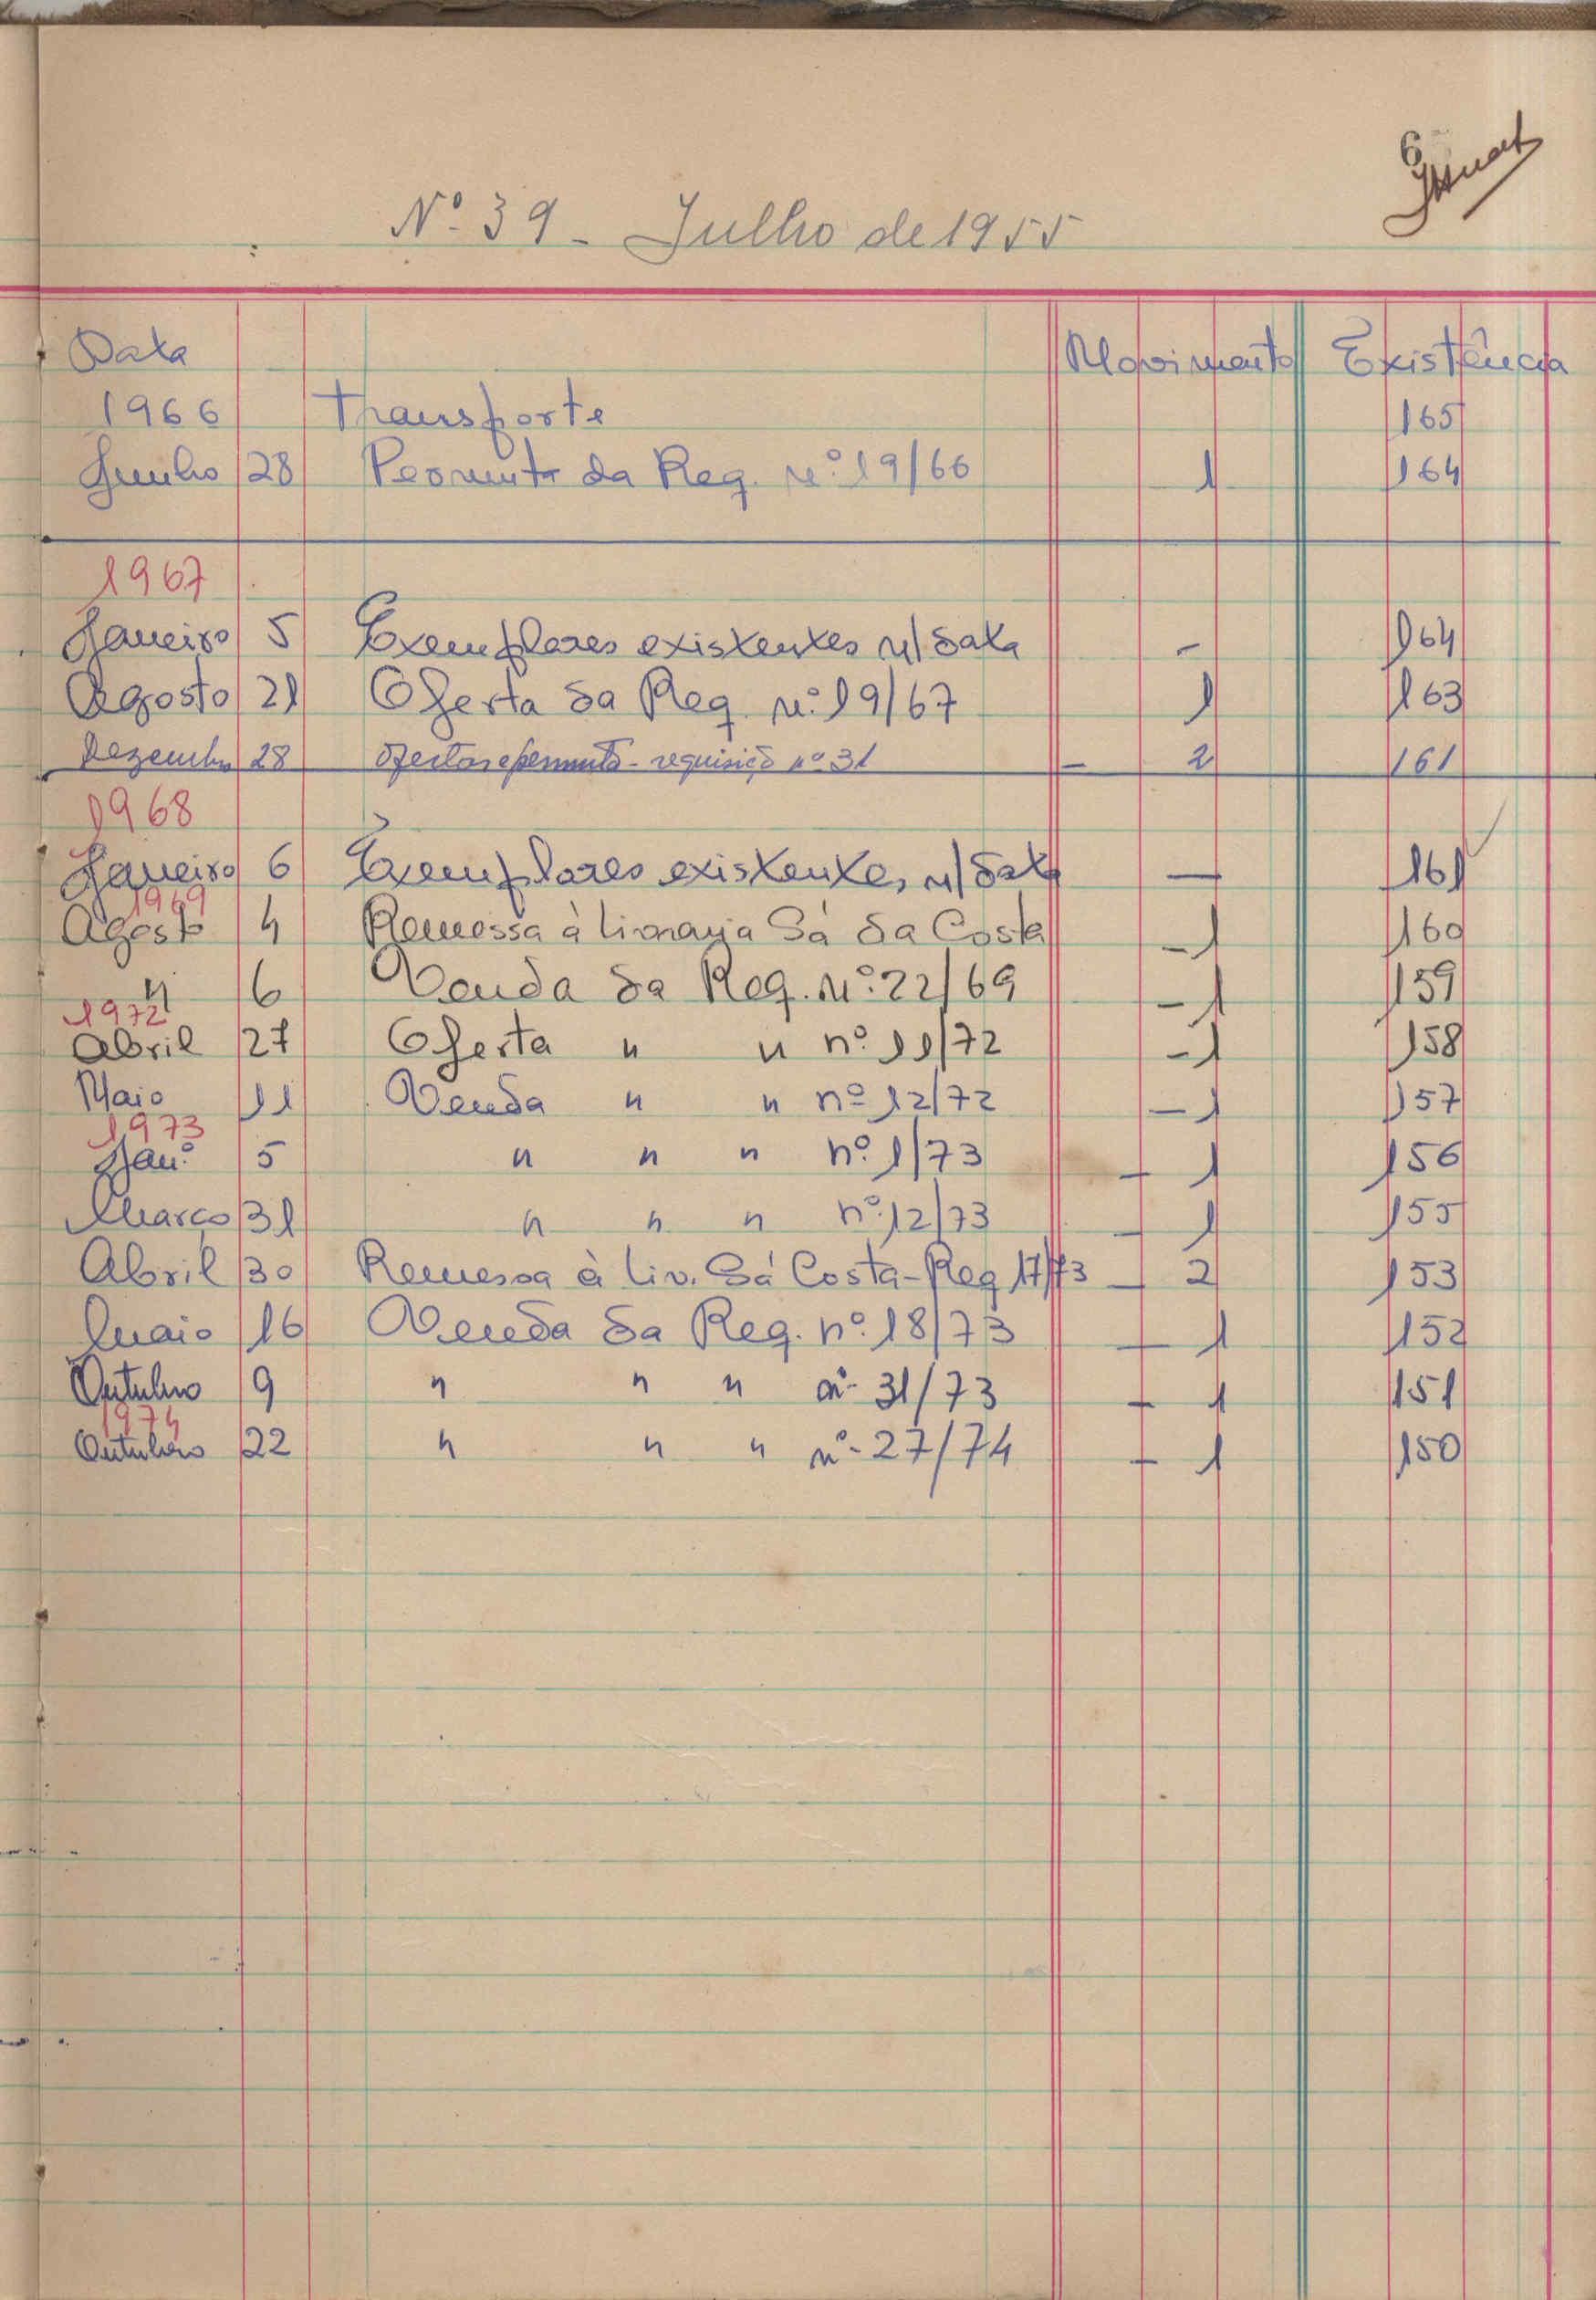 6
Nº 39 - Julho de 1955
Data Movimento Existência
1966 Transporte 165
Junho 28 Permuta da Req. nº 19/66 1 164
1967
Janeiro 5 Exemplares existentes n/ data - 164
Agosto 21 Oferta da Req. nº 19/67 1 163
Dezembro 28 Ofertas e permuta - requisição nº 31 - 2 161
1968
Janeiro 6 Exemplares existentes n/ data — 161
1969
Agosto 4 Remessa à Livraria Sá da Costa - 1 160
" 6 Venda da Req. nº 22/69 - 1 159
1972
Abril 27 Oferta " " nº 11/72 - 1 158
Maio 11 Venda " " nº 12/72 - 1 157
1973
Janº 5 " " " nº 1/73 - 1 156
Março 31 " " " nº 12/73 - 1 155
Abril 30 Remessa à Liv. Sá Costa - Req 17/73 - 2 153
Maio 16 Venda da Req. nº 18/73 - 1 152
Outubro 9 " " " nº 31/73 - 1 151
1974
Outubro 22 " " " nº 27/74 - 1 150